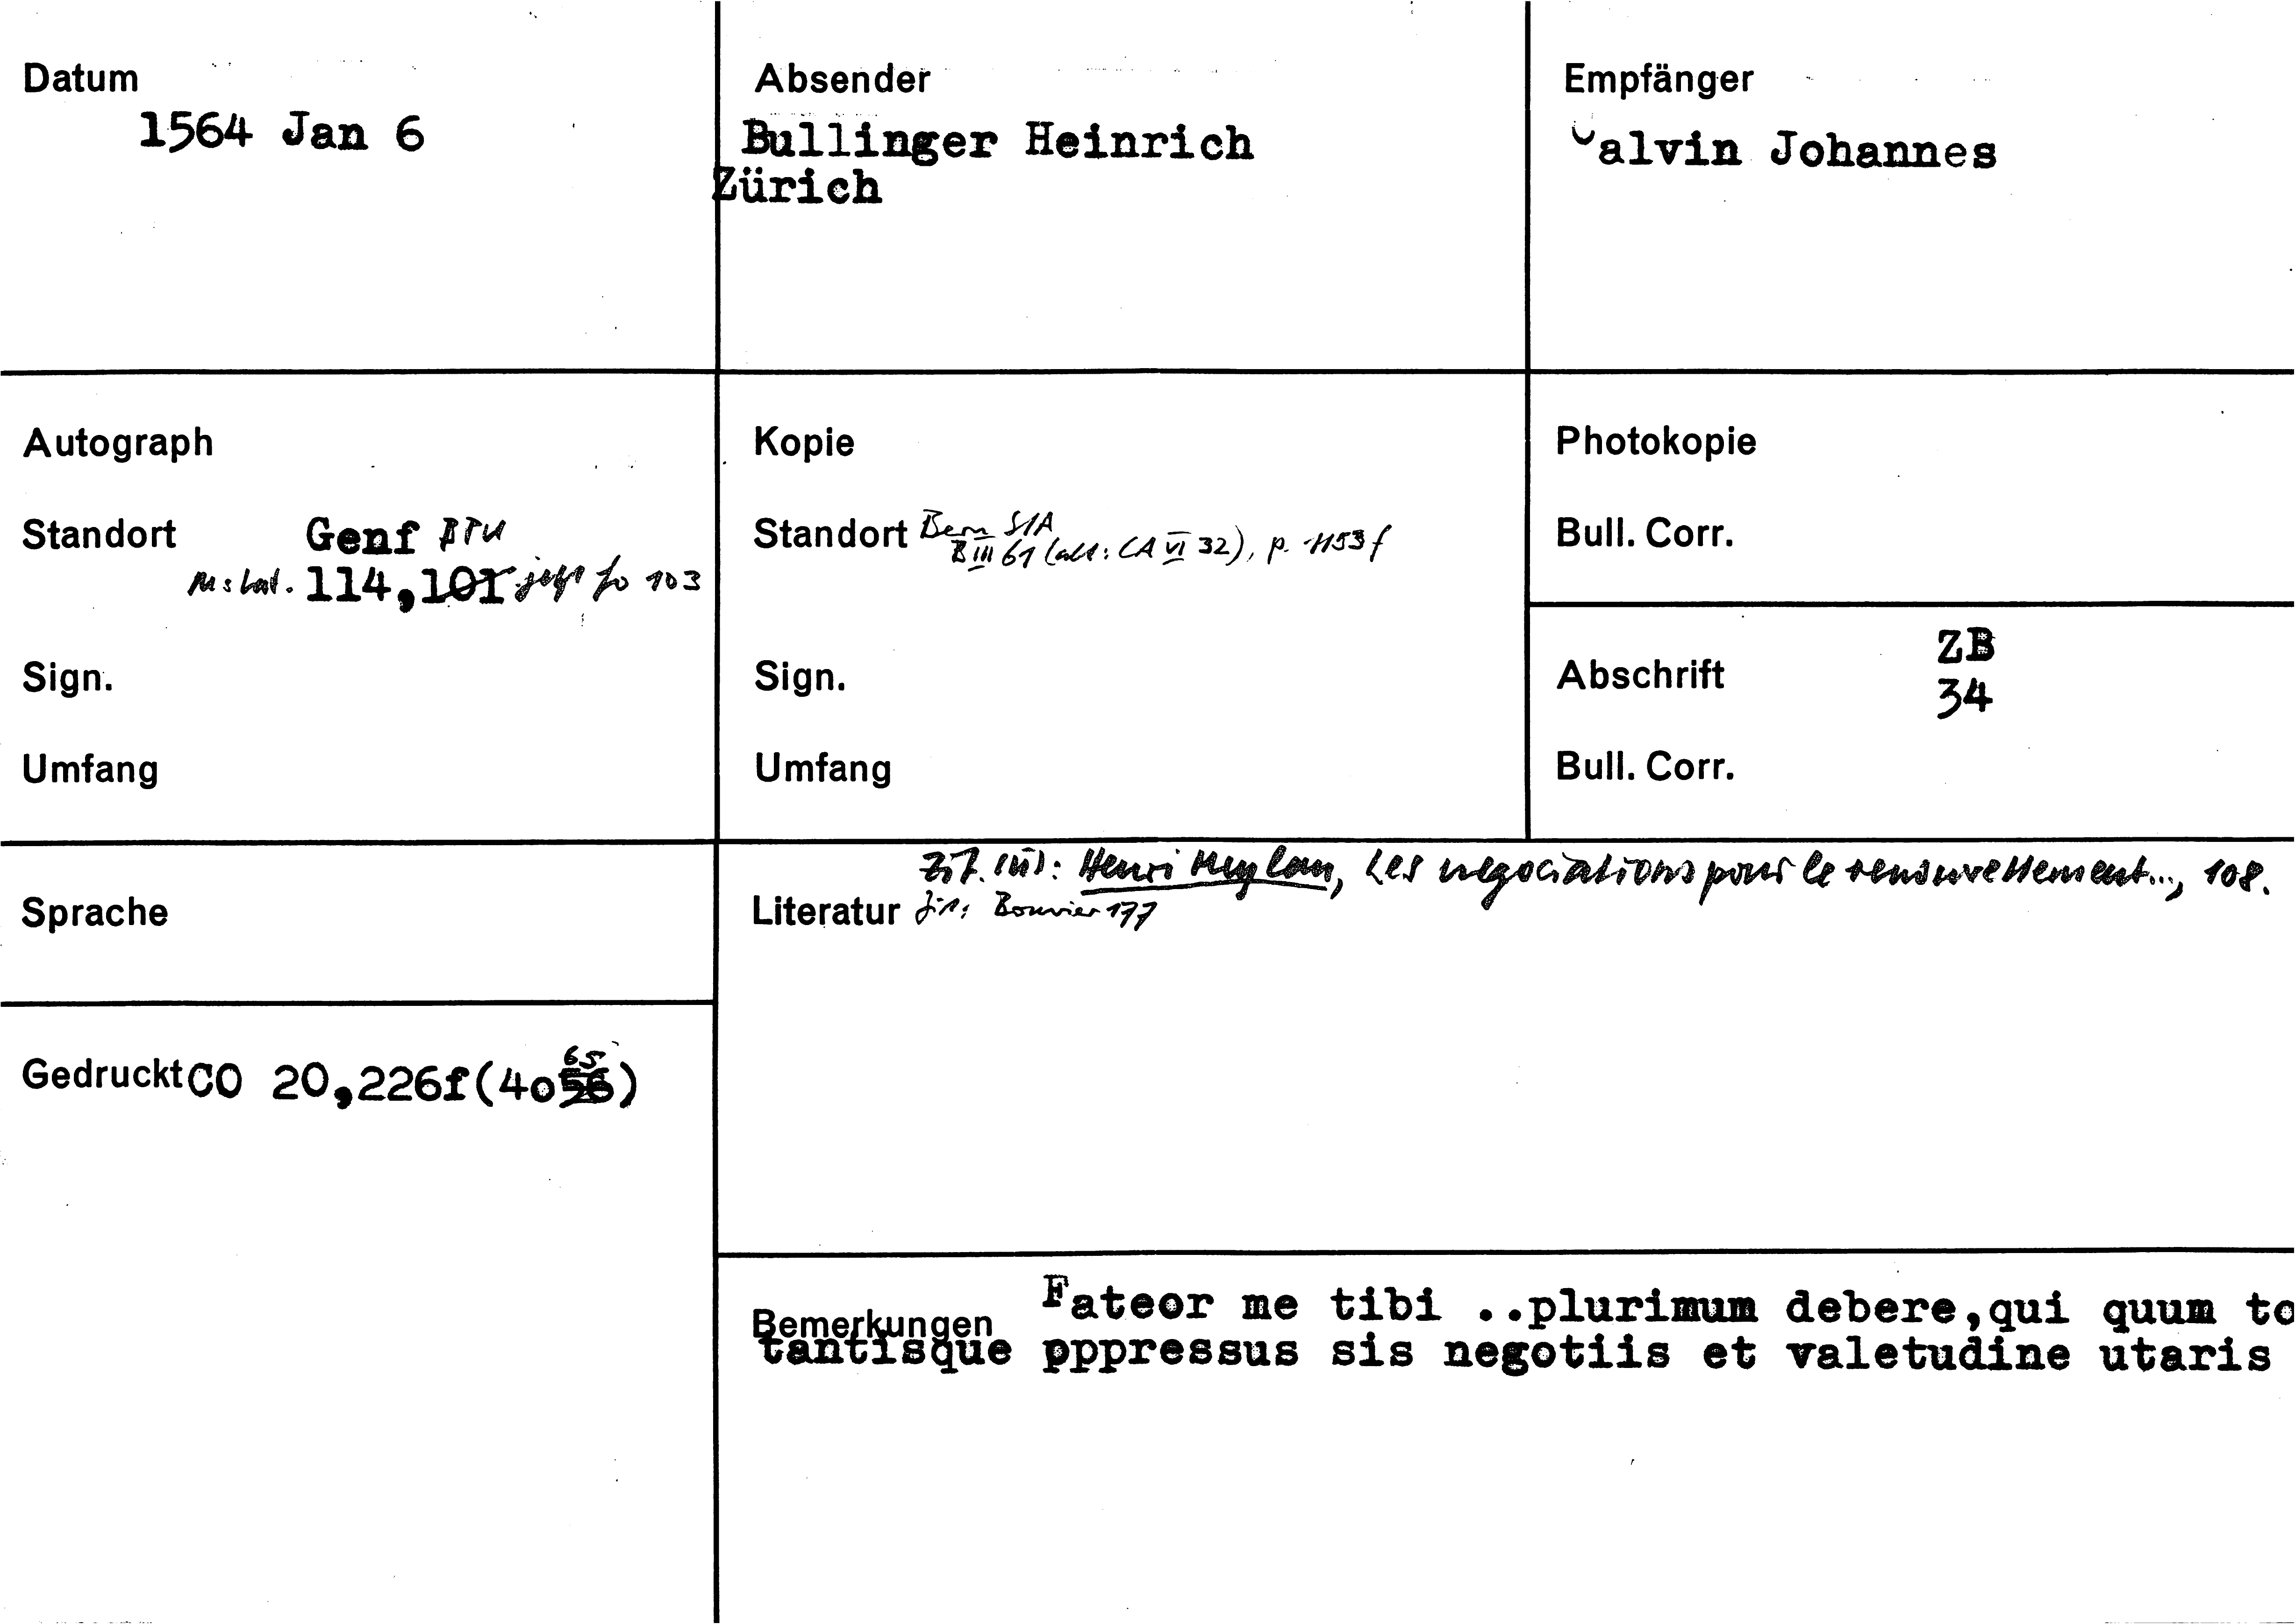 Datum
1564 Jan 6
Absender
Bullinger Heinrich
Zürich
Empfänger
Calvin Johannes
Autograph
Standort Genf BPU
Ms lat. 114,101 jetzt fo 103
Sign.
Umfang
Kopie
Standort Bern StA
B III 61 (alt: CA VI 32), p. 1153 f
Sign.
Umfang
Photokopie
Bull. Corr.
ZB
Abschrift
34
Bull. Corr.
Sprache
Zit. (II): Henri Meylan, Les negociations pour le renouvellement..., 108.
Literatur zit: Bouvier 177
65
Gedruckt CO 20,226f(4056)
Bemerkungen Fateor me tibi ..plurimum debere,qui quum to
tantisque pppressus sis negotiis et valetudine utaris